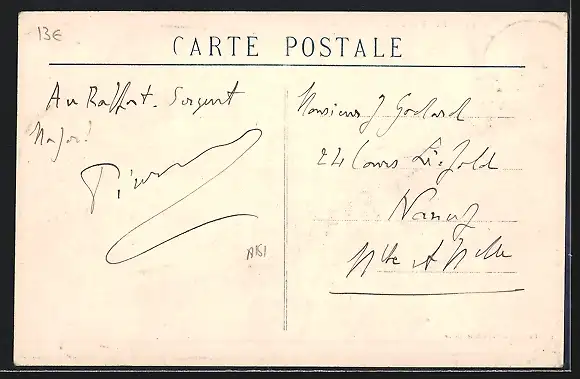 13€
CARTE POSTALE
Au Rapport. Sergent
Major!
Pierre
A151
Monsieur J Godard
24 Cours Léopold
Nancy
Mthe et Mlle